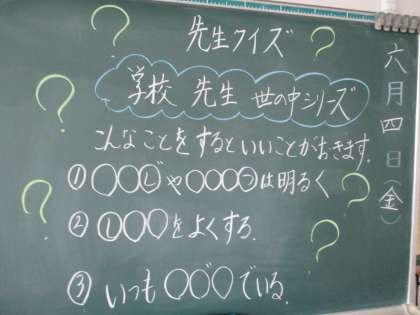 先生クイズ
学校 先生 世の中シリーズ
こんなことをするといいことがおきます。
①○○じや○○○○つは明るく
②し○○をよくする。
③いつも○○゛○でいる。
六月四日(金)
?
?
?
?
?
?